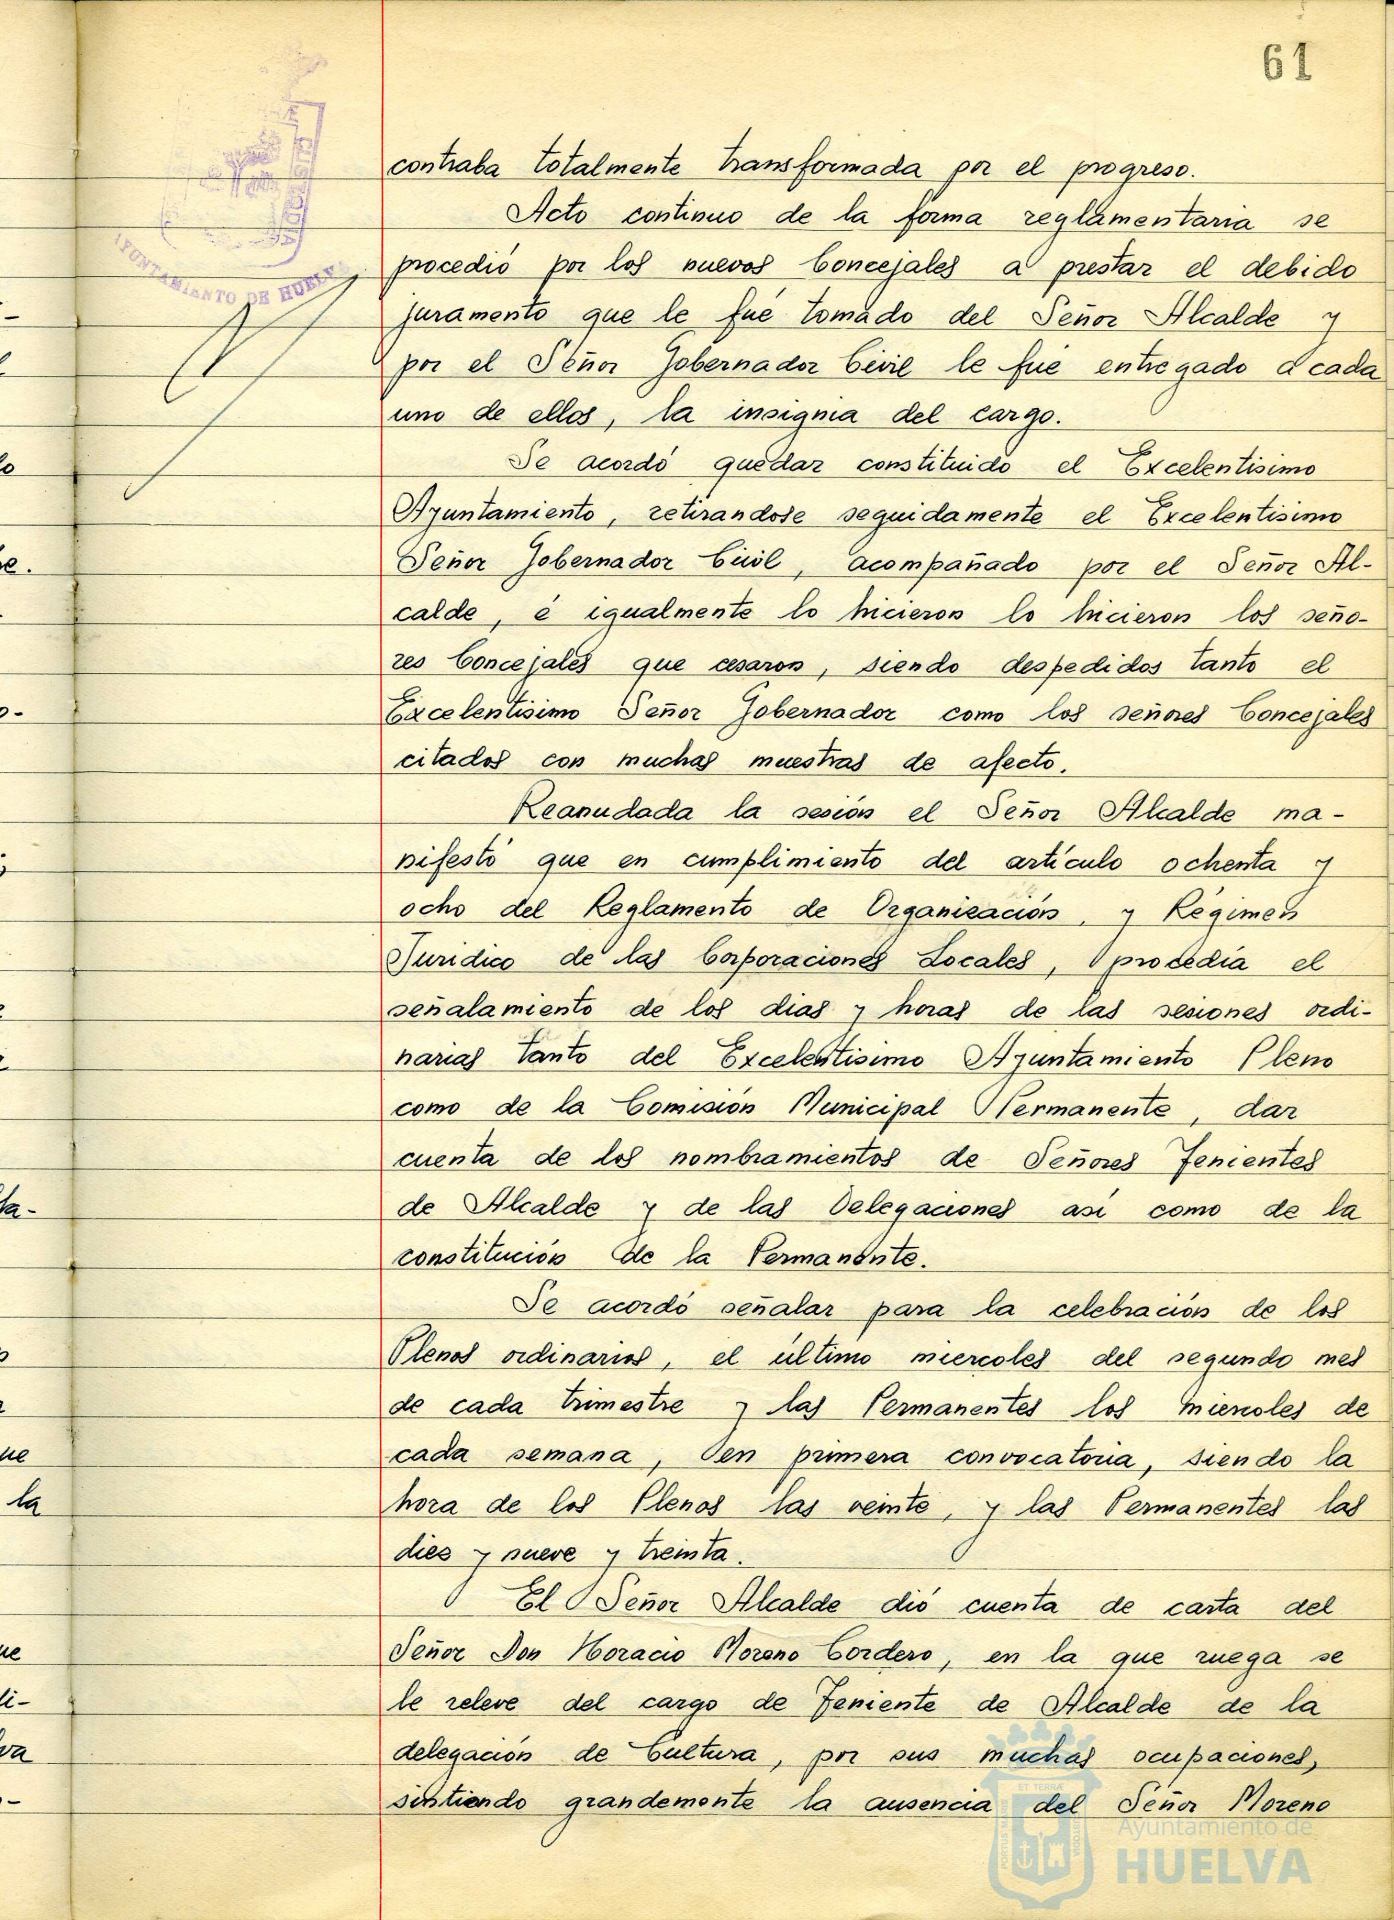 61
contraba totalmente transformada por el progreso.
Acto continuo de la forma reglamentaria se
procedió por los nuevos Concejales a prestar el debido
juramento que le fué tomado del Señor Alcalde y
por el Señor Gobernador Civil le fué entregado a cada
uno de ellos, la insignia del cargo.
Se acordó quedar constituido el Excelentisimo
Ayuntamiento, retirandose seguidamente el Excelentisimo
Señor Gobernador Civil, acompañado por el Señor Al-
calde, é igualmente lo hicieron lo hicieron los seño-
res Concejales que cesaron, siendo despedidos tanto el
Excelentisimo Señor Gobernador como los señores Concejales
citados con muchas muestras de afecto.
Reanudada la sesión el Señor Alcalde ma-
nifestó que en cumplimiento del artículo ochenta y
ocho del Reglamento de Organización, y Régimen
Juridico de las Corporaciones Locales, procedía el
señalamiento de los dias y horas de las sesiones ordi-
narias tanto del Excelentisimo Ayuntamiento Pleno
como de la Comisión Municipal Permanente, dar
cuenta de los nombramientos de Señores Tenientes
de Alcalde y de las Delegaciones asi como de la
constitución de la Permanente.
Se acordó señalar para la celebración de los
Plenos ordinarios, el último miercoles del segundo mes
de cada trimestre y las Permanentes los miercoles de
cada semana, en primera convocatoria, siendo la
hora de los Plenos las veinte, y las Permanentes las
diez y nueve y treinta.
El Señor Alcalde dió cuenta de carta del
Señor Don Horacio Moreno Cordero, en la que ruega se
le releve del cargo de Teniente de Alcalde de la
delegación de Cultura, por sus muchas ocupaciones,
sintiendo grandemente la ausencia del Señor Moreno
CUSTODIA
AYUNTAMIENTO DE HUELVA
Ayuntamiento de
HUELVA